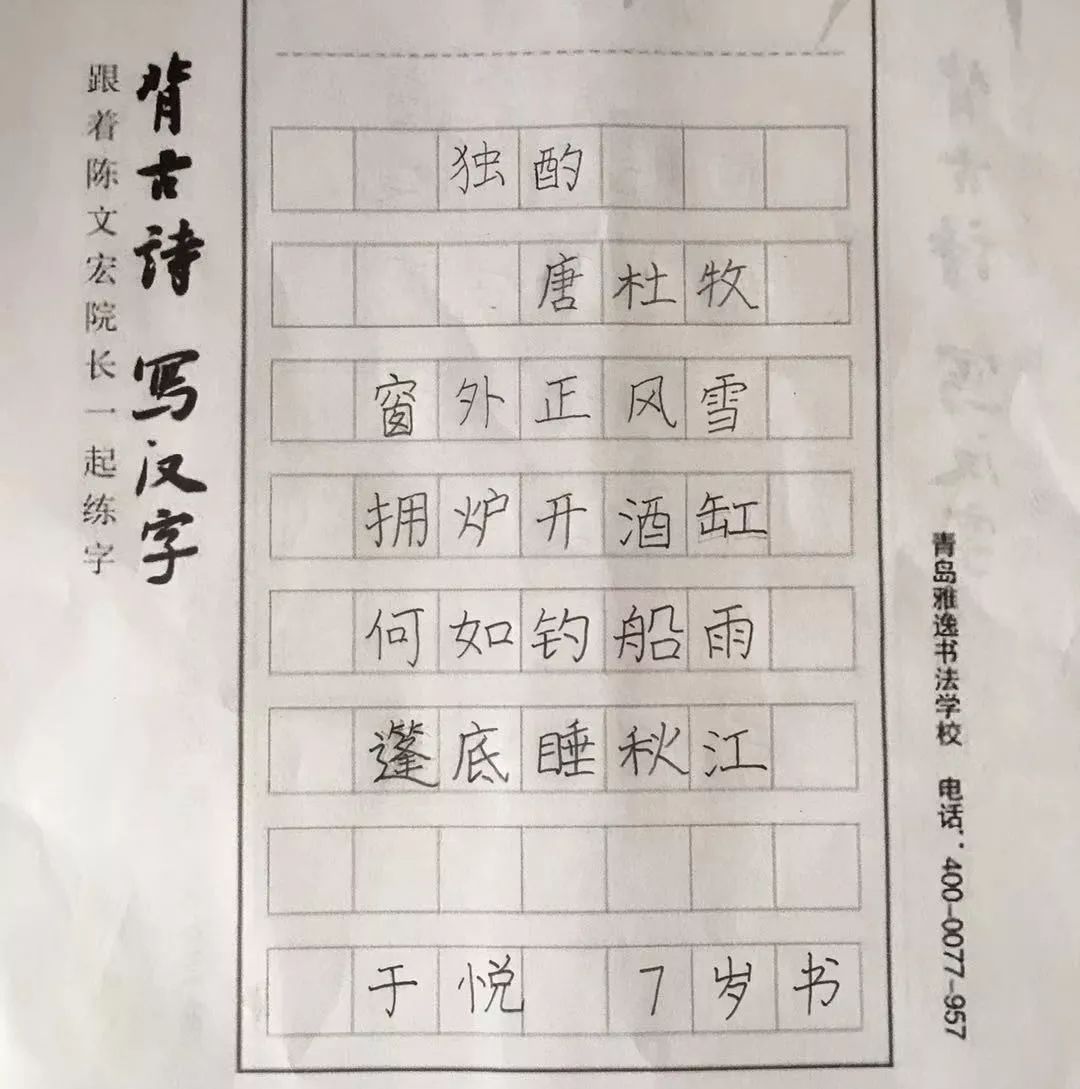 背古诗 写汉字
跟着陈文宏院长一起练字
独酌
唐杜牧
窗外正风雪
拥炉开酒缸
何如钓船雨
篷底睡秋江
于悦 7岁书
青岛雅逸书法学校 电话：400-0077-957